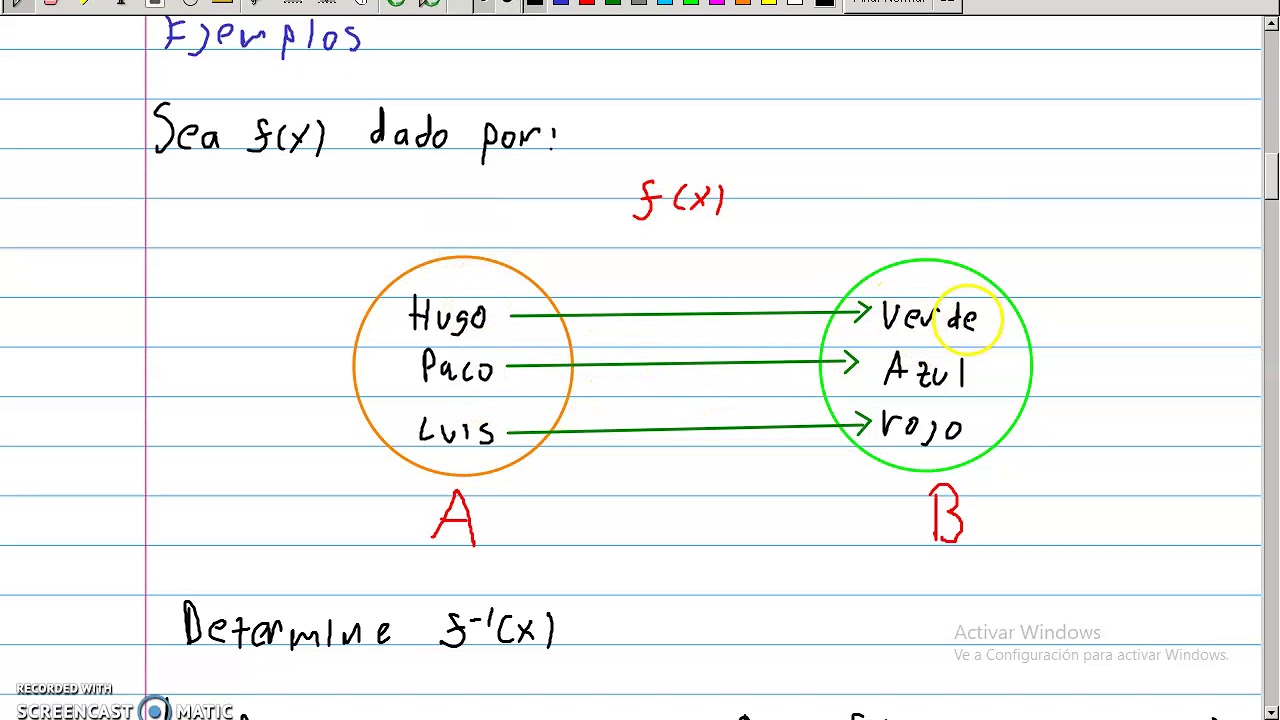 Ejemplos
Sea f(x) dado por:
f(x)
Hugo Verde
Paco Azul
Luis rojo
A B
Determine f⁻¹(x)
Activar Windows
Ve a Configuración para activar Windows.
RECORDED WITH
SCREENCAST MATIC